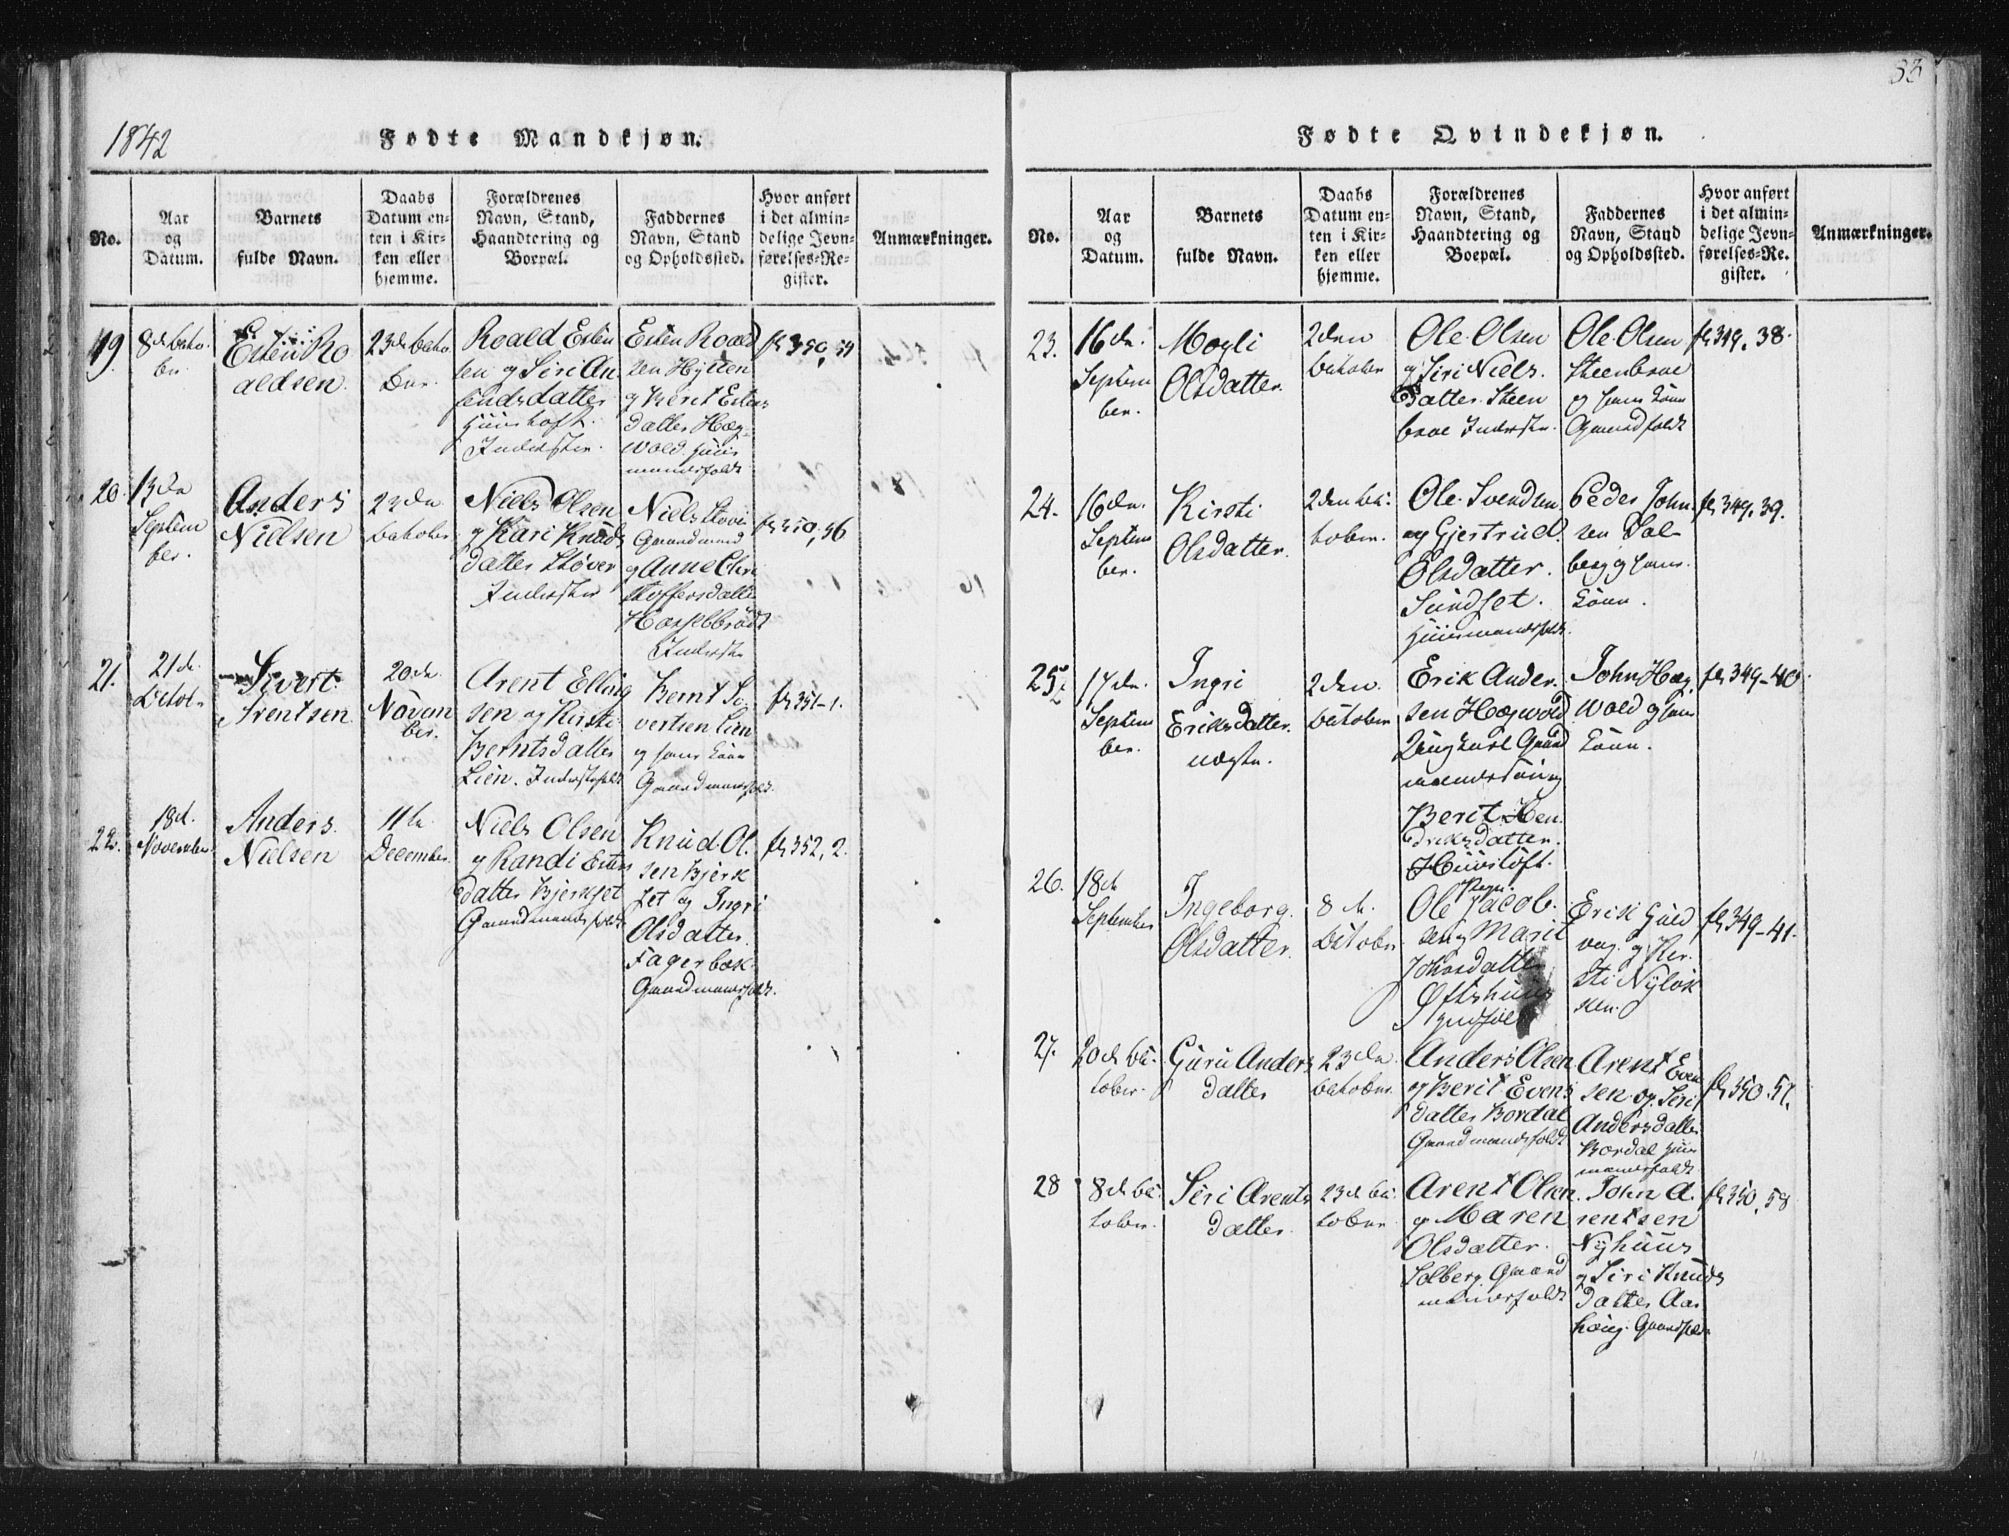 1842
Fødte Mandkjøn.
No.
Aar
og
Datum.
Barnets
fulde Navn.
Daabs
Datum en-
ten i Kir-
ken eller
hjemme.
Forældrenes
Navn, Stand,
Haandtering og
Boepæl.
Faddernes
Navn, Stand
og Opholdssted.
Hvor anført
i det almin-
delige Jevn-
førelses-Re-
gister.
Anmærkninger.
19.
Esten Ro
aldsen.
Roald Esten
sen og Siri An
Inderster.
Esten Roald
sen Hytten
og Berit Estens
datter Hæg-
wold. Huus
mandsfolk
20.
13de
Septem
ber.
Anders
Nielsen
23de
October
Niels Olsen
og Kari Knuds
datter Støver
Inderster
Niels Støv
Gaardmand
og Anne Chri
stoffersdatter
Hasselbrødt
Inderste
21.
21de
Octob.
Sivert
Arentsen
20de
Novem
ber.
Arent Elling
sen og Kirsti
Berntsdatter
Lien. Inderstefolk
Bernt Si
vertsen Lien
og hans Kone
Gaardmandsfolk.
fl 351-1.
22.
18d.
November
Anders
Nielsen
11te
December
Niels Olsen
og Randi Estens
datter Bjerkset
Gaardmandsfolk
Knud Ol.
sen Bjerk
set og Ingri
Olsdatter
Fagerbæk
Gaardmandsfolk.
fl 352, 2.
83
Fødte Qvindekjøn.
No.
Aar
og
Datum.
Barnets
fulde Navn.
Daabs
Datum en-
ten i Kir-
ken eller
hjemme.
Forældrenes
Navn, Stand,
Haandtering og
Boepæl.
Faddernes
Navn, Stand
og Opholdssted.
Hvor anført
i det almin-
delige Jevn-
førelses-Re-
gister.
Anmærkninger.
23.
16de
Septem
ber.
Magli
Olsdatter.
2den
October
Ole Olsen
og Siri Niels.
Datter. Steen
broe Inderster.
Ole Olsen
Steenbroe
og hans Kone
Gaardfolk
fl 349, 38.
24.
16de.
Septem
ber.
Kirsti
Olsdatter.
2den Oc-
tober.
Ole Svendsen
og Gjertrud
Olsdatter.
Sundset.
Huusmandsfolk.
Peder John
sen Sol-
berg og hans
Kone.
fl 349, 39.
25.
17de.
Septem
ber.
Ingri
Eriksdatter.
uægte.
2den.
October
Erik Ander.
sen Hægwold
Ungkarl Gaard
mandssøn og
Berit Hen
driksdatter.
Huusløft.
Pige.
John Hæg
wold og hans
Kone.
fl 349-40.
26.
18de
September
Ingeborg
Olsdatter.
8de.
October
Ole Jacob.
sen og Marit
Johnsdatter
Erik Guld
vag. og Ker.
sti Nyløk
ken.
fl 349-41.
27.
20de Oc-
tober.
Guru Anders
datter
23de
October
Anders Olsen
og Berit Evens
datter Bordal
Gaardmandsfolk
Arent Even
sen og Siri
Andersdatter
Bordal Huus
mandsfolk
fl 350.57.
28
8de Oc.
tober.
Siri Arents
datter.
23de Oc.
tober.
Arent Olsen.
og Maren
Olsdatter.
Solberg. Gaard
mandsfolk
John A.
rentsen
Nyhuus
og Siri Knuds
datter Aas
haug. Gaardfolk
fl 350, 58